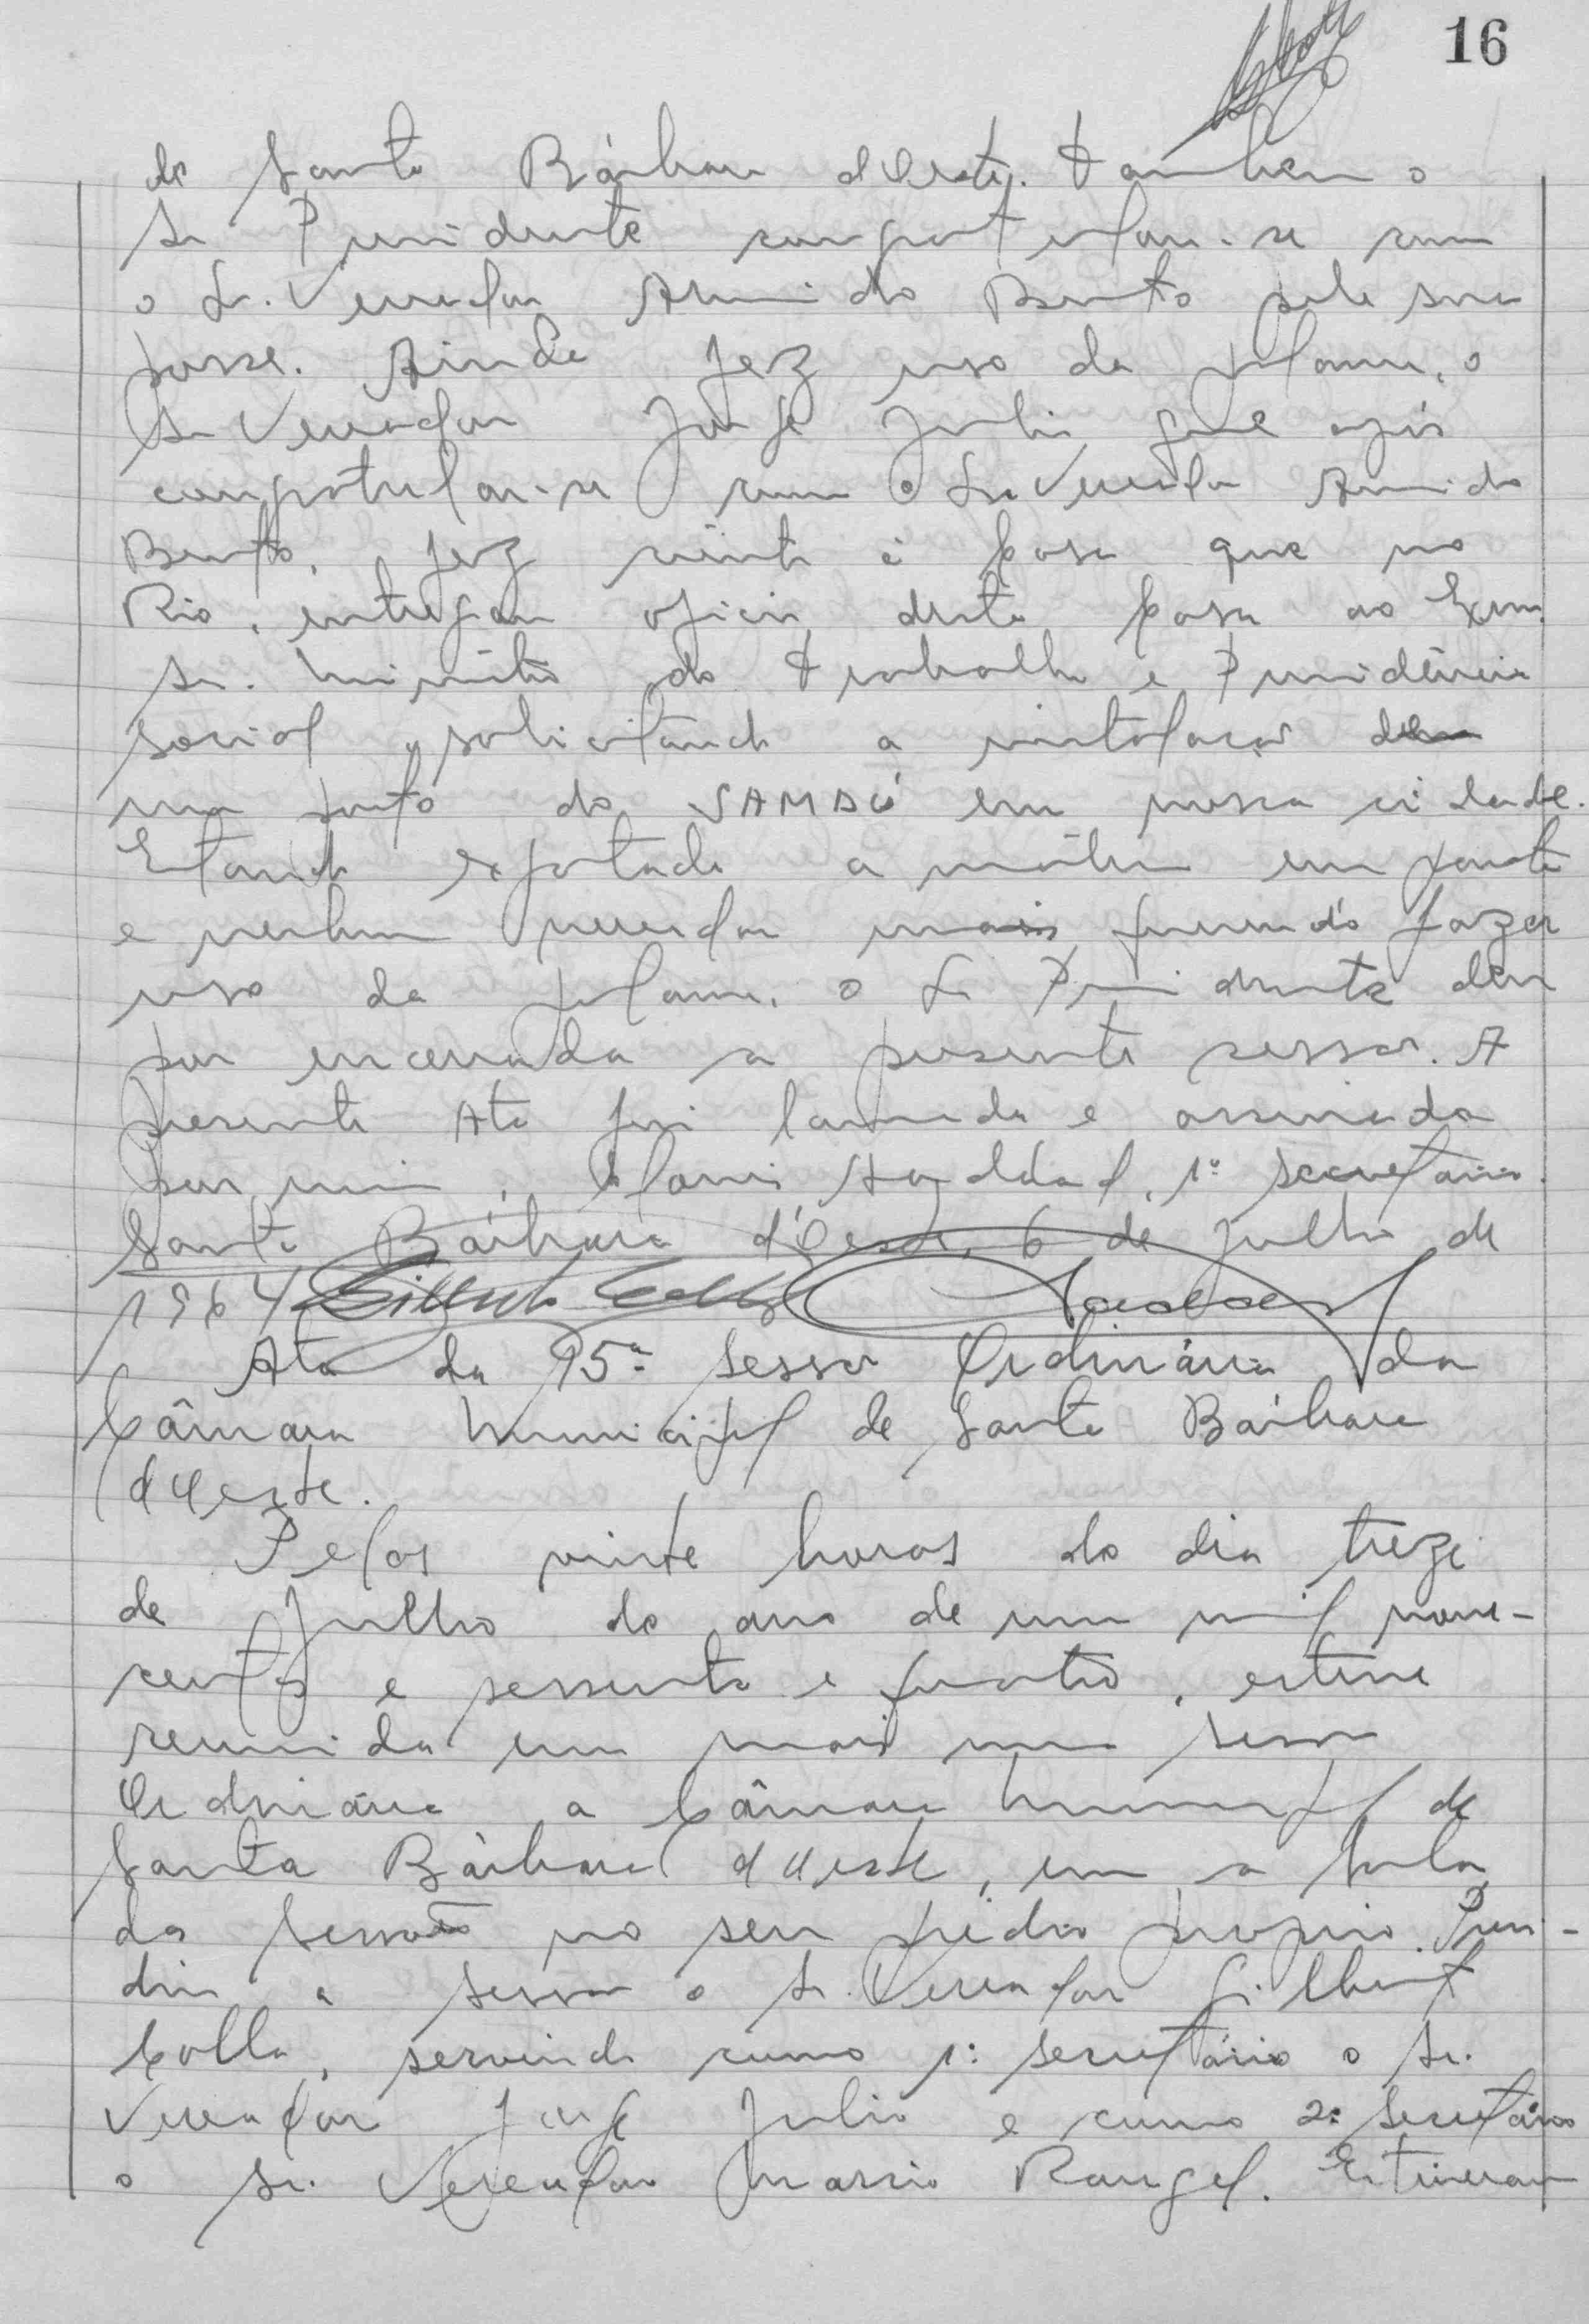 16
de Santa Bárbara d'Oeste. Também o
Sr Presidente congratulou-se com
o Sr. Vereador Armindo Bento pela sua
posse. Ainda fez uso da palavra, o
Sr Vereador Jorge Julio que após
congratular-se com o Sr. Vereador Armindo
Bento, fez ciente à Casa que no
Rio, entregou oficio desta Casa ao Exmo.
Sr. Ministro do Trabalho e Previdência
Social, solicitando a instalação de
um posto do SAMDU em nossa cidade.
Estando esgotada a matéria em pauta
e nenhum vereador mais querendo fazer
uso da palavra, o Sr Presidente deu
por encerrada a presente sessão. A
presente Ata foi lavrada e assinada
por mim, Haddad, 1º secretário.
Santa Bárbara d'Oeste, 6 de Julho de
1964
Ata da 15ª Sessão Ordinária da
Câmara Municipal de Santa Bárbara
d'Oeste.
Pelas vinte horas do dia treze
de Julho do ano de um mil nove-
centos e sessenta e quatro, esteve
reunida em mais uma sessão
Ordinária a Câmara Municipal de
Santa Bárbara d'Oeste, em a Sala
das Sessões no seu prédio proprio. Presi-
diu a sessão o Sr. Vereador Gilberto
Colla, servindo como 1º Secretário o Sr.
Vereador Jorge Julio e como 2º Secretário
o Sr. Vereador Mario Rangel. Estiveram